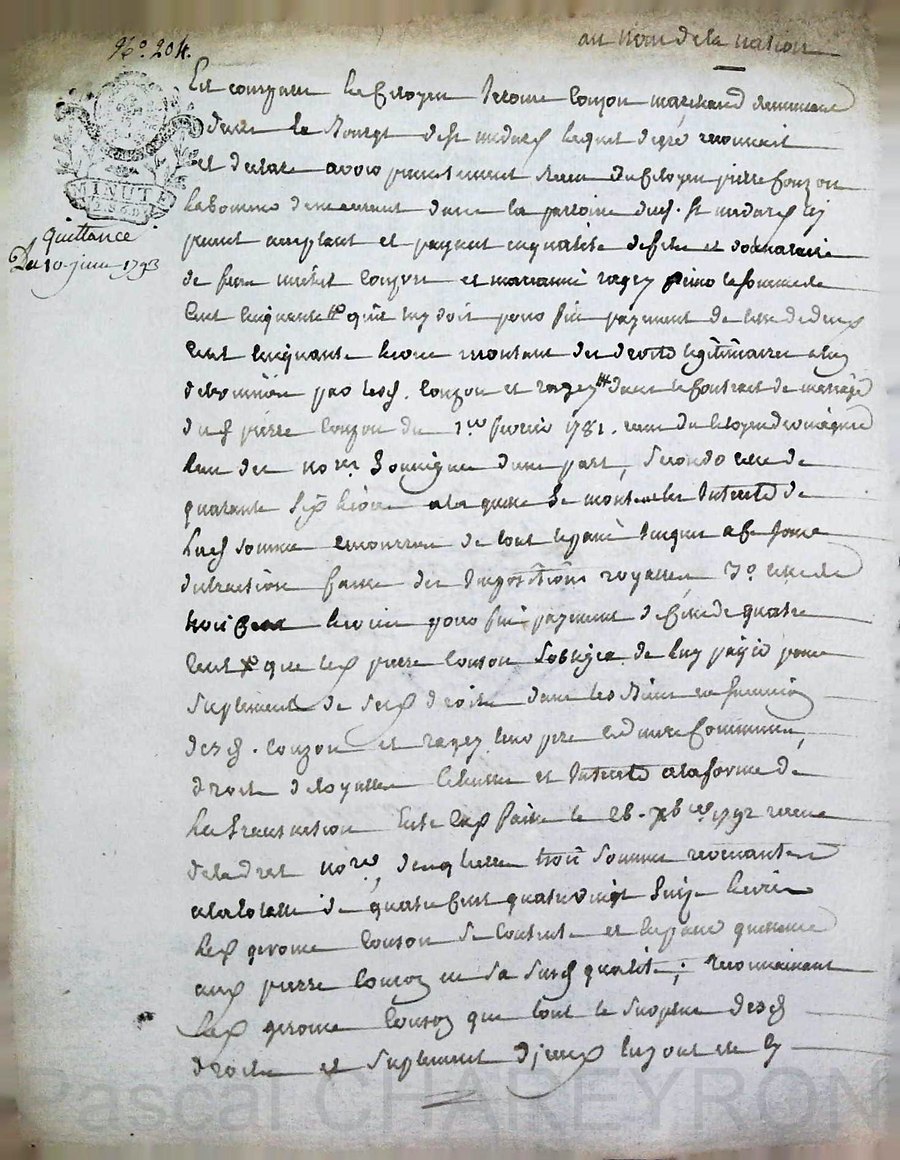 N.º 204.
au nom de la nation
Est comparu le Citoyen Jerome Couzon marchand demeurant
dans le Bourg de St medard lequel de gré reconnait
et declare avoir presentement recu du Citoyen pierre Couzon
laboureur demeurant dans la parroisse dud. St medard icy
MINUT
quittance
Du 10 juin 1793
present acceptant et payant en qualité de fils et donataire
de feux Couzon et marianne ragey primo la somme de
Cent Cinquante tt qu'il luy doit pour fin payement de celle de deux
Cent Cinquante livres montant des droits legitimaires a luy
par lesd. Couzon et ragey dans le Contrat de mariage
dud pierre Couzon du 1.er fevrier 1781. recu du Citoyen
l'un des no.res Soussignes d'une part, Secondo celle de
quarante Six livres a laquelle se montent les Interets de
lad somme de tout le passé Jusques a ce Jour
detraction faite des Impositions royalles, 3.º celle de
trois Cent livres pour fin payement de celle de quatre
Cent tt que led pierre Couzon s'obligea de luy payer pour
Suplement de Sesd droits dans les Biens
desd. Couzon et ragey leurs pere et mere Communs,
droits et Interets a la forme de
la transaction Entre Eux passée le 26. Xbre 1792 recue
no.re, desquelles trois Sommes revenantes
a la totalle de quatre Cent quatre vingt Seize livres
led gerome Couzon Se Contente et en passe quittance
aud pierre Couzon en sa Susd qualité; reconnaissant
led gerome Couzon que tout le Surplus desd
droits et Suplement d'jceux luy ont été
Pascal CHAREYRON